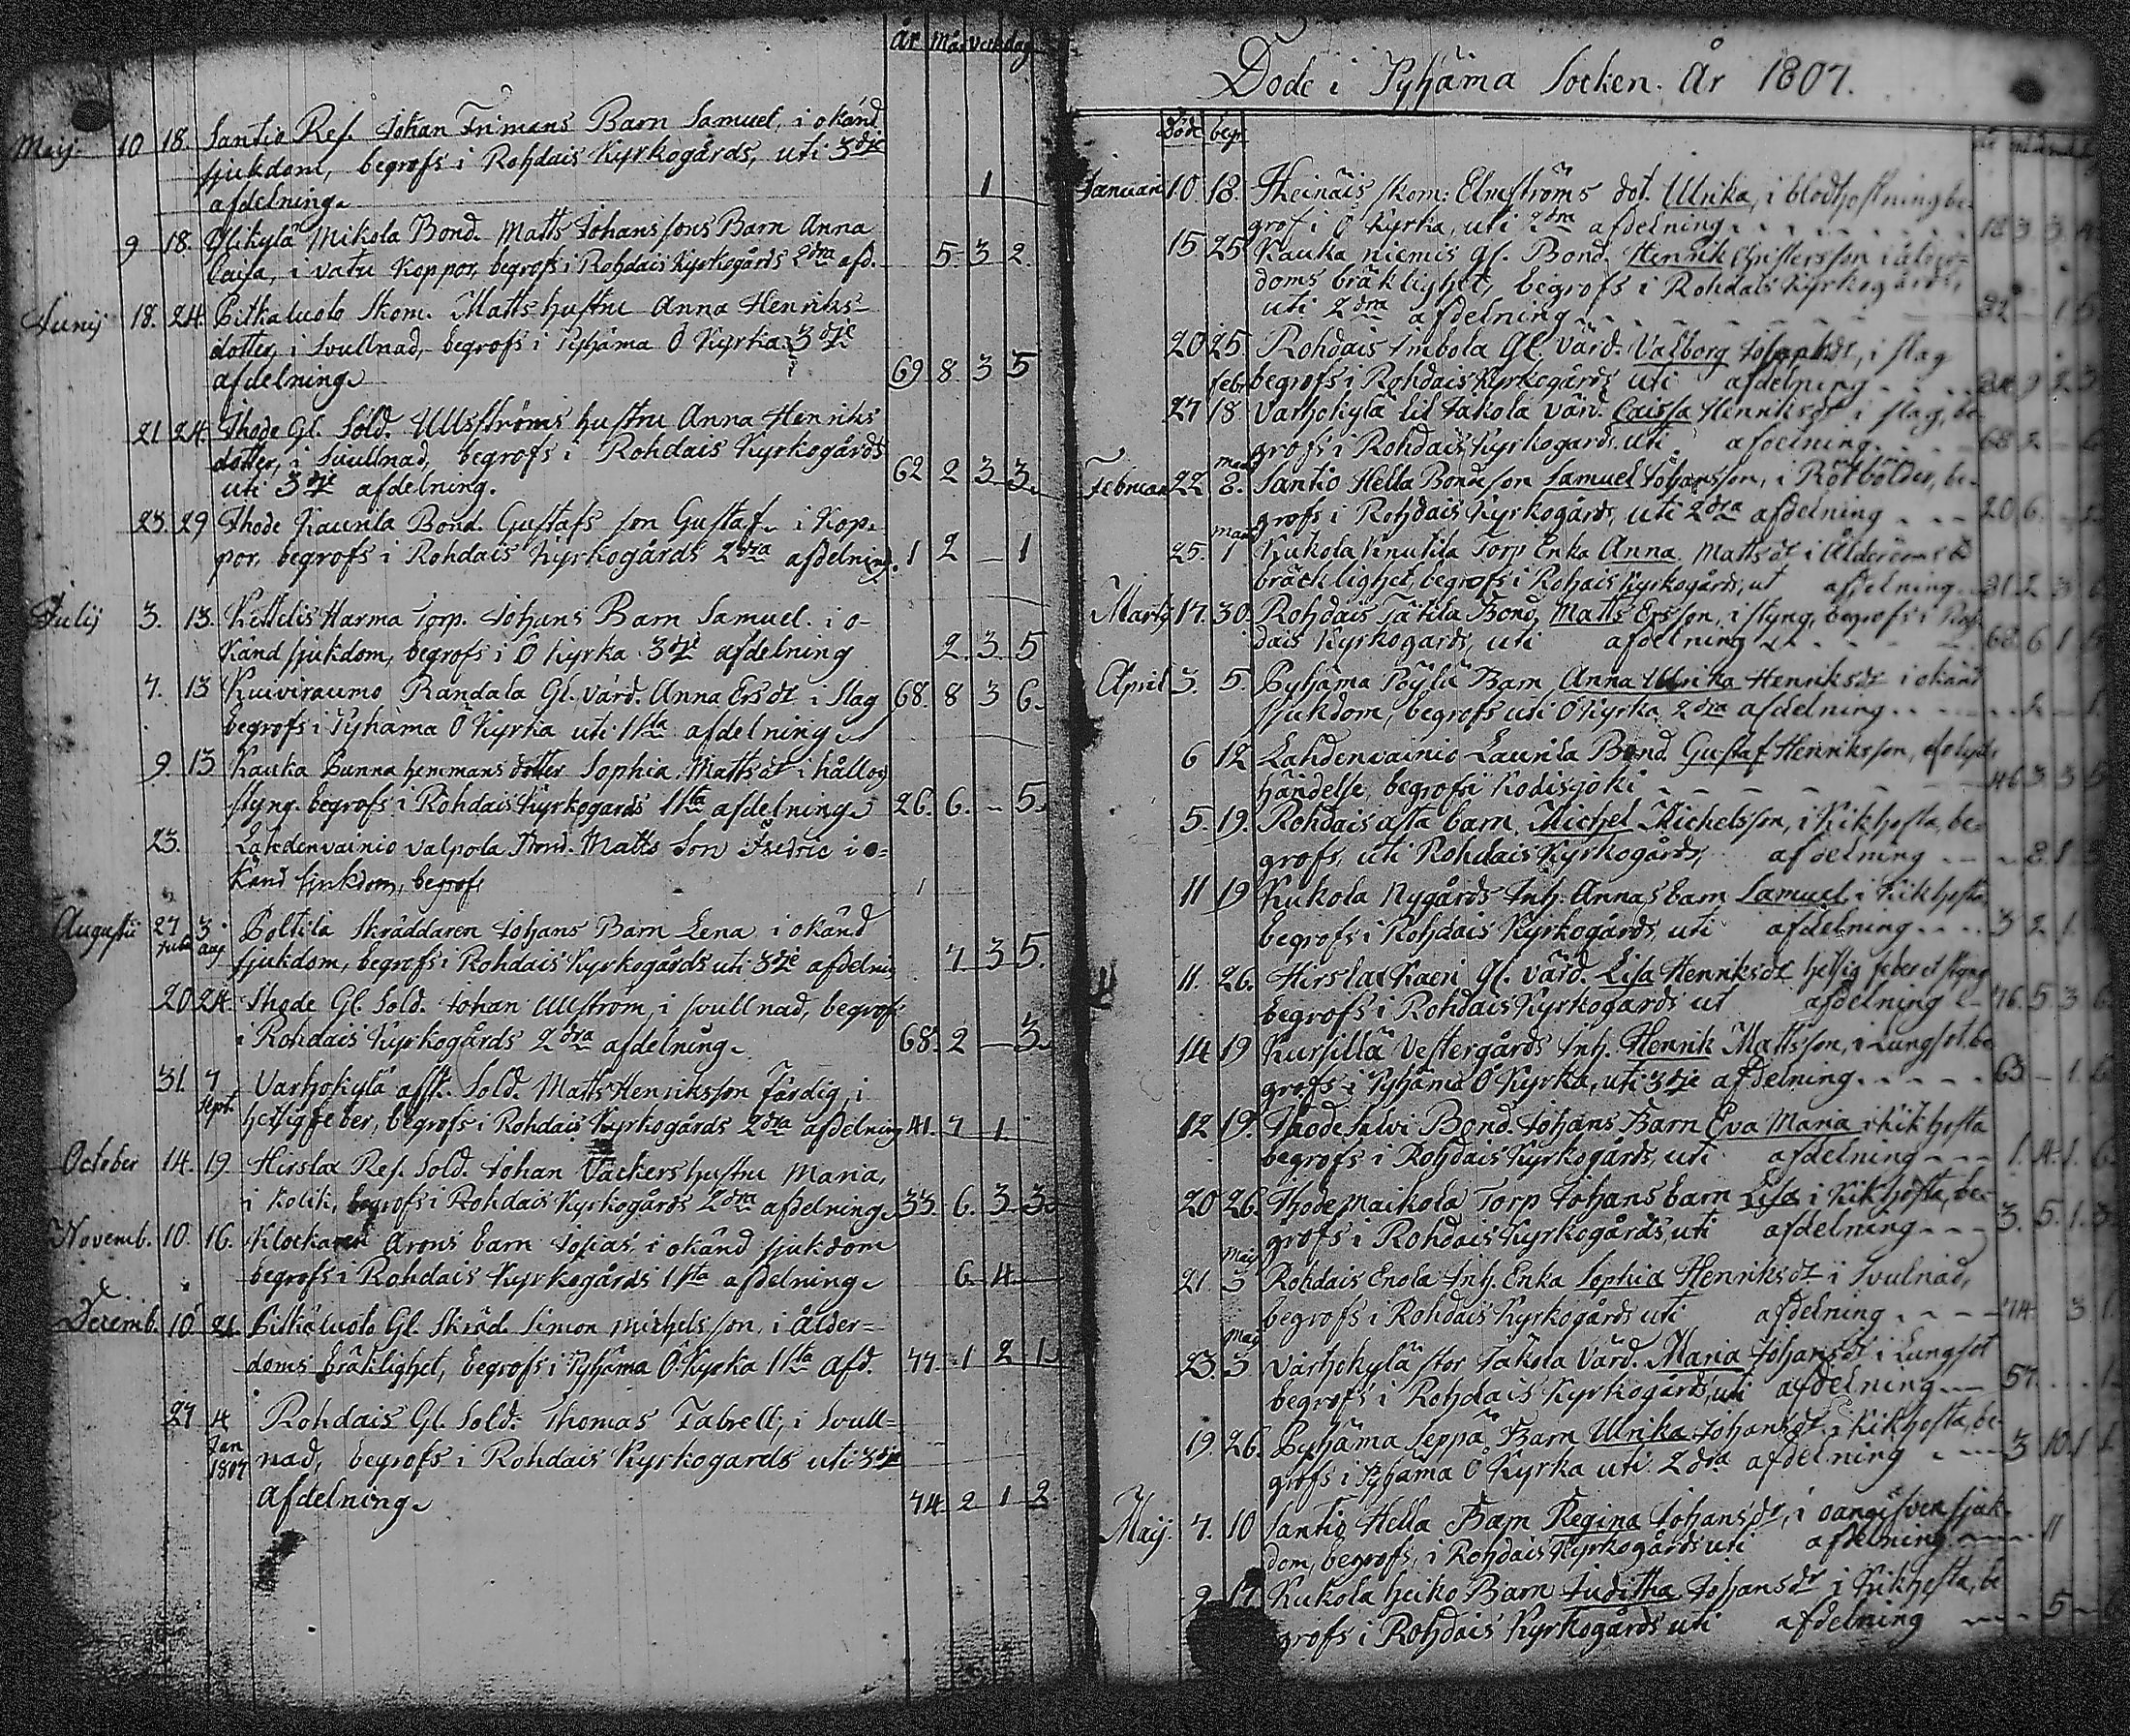 år Mån Veck dag
Maij. 10 18. Santio Ref. Johan Frimans Barn Samuel, i okänd
sjukdom, begrofs i Rohdais Kyrkogårds, uti 3dje
afdelning. 1
9 18. Ylikylä Mikola Bond. Matts Johanssons Barn Anna
Caisa, i vatu Koppor, begrofs i Rohdais Kyrkogårds 2dra afd. 5 3 2
Junij 18. 24. Pitkaluoto Skom. Matts hustru Anna Henriks-
dotter, i Svullnad, begrofs i Pyhäma Ö Kyrka 3dje
afdelning 69 8 3 5
21 24. Ihode Gl. Sold. Ullströms hustru Anna Henriks
dotter, i Svullnad, begrofs i Rohdais Kyrkogårds
uti 3dje afdelning. 62 2 3 3.
23. 29 Ihode Kaunla Bond. Gustafs son Gustaf i Kop-
por, begrofs i Rohdais Kyrkogårds 2dra afdelning. 1 2 – 1
Julij 3. 13. Kettelis Harma Torp. Johans Barn Samuel. i o-
känd sjukdom, begrofs i Ö Kyrka 3dje afdelning 2. 3. 5
7. 13 Kuiviraumo Randala Gl. värd. Anna Ersdt i slag 68. 8 3 6.
begrofs i Pyhäma Ö Kyrka uti 1sta afdelning
9. 13 Kauka Bunna hemmans dotter Sophia Mattsdt i håll og
styng. begrofs i Rohdais Kyrkogårds 1sta afdelning 26. 6. – 5.
23. Lahdenvainio Valpola Bond. Matts Son Fredric i o=
känd sjukdom, begrofs
Augustii 27 Julii 3 aug Poltila Skräddaren Johans Barn Lena i okänd
sjukdom, begrofs i Rohdais Kyrkogårds uti 3dje afdelning 7 3 5.
20 24. Ihode Gl. Sold. Johan Ullström, i svullnad, begrofs
i Rohdais Kyrkogårds 2dra afdelning. 68. 2 – 3.
31. 7 Sept. Varhokylä afsk. Sold. Matts Henriksson Färdig, i
hetsigfeber, begrofs i Rohdais Kyrkogårds 2dra afdelning 41. 7 1.
October 14. 19 Hirslax Ref. Sold. Johan Vackers hustru Maria,
i Kolik, begrofs i Rohdais Kyrkogårds 2dra afdelning 33. 6. 3 3.
Novemb. 10. 16. Klockaren Arons barn Josias, i okänd sjukdom
begrofs i Rohdais Kyrkogårds 1sta afdelning 6 4
Decemb. 10 21. Pitkäluoto Gl. Skräd. Simon Michelsson, i Ålder=
doms bräklighet, begrofs i Pyhäma Ö Kyrka 1sta afd. 77 1 2 1
27 4 Jan 1807 Rohdais Gl. Sold. Thomas Tabrell, i Svull=
nad, begrofs i Rohdais Kyrkogards uti 3dje
afdelning 74 2 1 2
Döde i Pyhäma Socken. År 1807.
Döde begr.
Januari 10. 18. Heinäis skom: Elmströms dot. Ulrika, i blodhostning be-
grof i Ö Kyrka, uti 2dra afdelning 18 3 3
15. 25 Kauka niemis Gl. Bond. Henrik Christersson i ålder-
doms bräklighet, begrofs i Rohdais Kyrkogårds,
uti 2dra afdelning 82 – 1 5
20 25. Rohdais Imbola Gl. Värd. Valborg Josephsdt, i slag
begrofs i Rohdais Kyrkogårds uti afdelning 9 2 3
27 febr 18 Varhokylä lil Jakola värd. Caissa Henriksdt i slag, be-
grofs i Rohdais Kyrkogards. uti afdelning. 68 2 – 6
Februari 22 Mart 8. Santio Hella Bondeson Samuel Johansson, i Rötbölder, be-
grofs i Rohdais Kyrkogårds, uti 2dra afdelning 20 6.
25. Mart 1 Kukola Knutila Torp Enka Anna Mattsdt i Ålderdoms
bräcklighet, begrofs i Rohdais Kyrkogårds, ut afdelning. 81. 2 3 6
Martij 17. 30. Rohdais Täkila Bond. Matts Ersson, i styng, begrofs i Roh-
dais Kyrkogards, uti afdelning 68. 6 1
April 3. 5. Pyhäma Pöylä Barn Anna Ulrika Henriksdt i okänd
sjukdom, begrofs uti Ö Kyrka 2dra afdelning 2 – 1.
6 12 Lahdenvainio Launila Bond. Gustaf Henriksson, af olycks
händelse, begrofs i Kodisjoki 46 3 3 5
5. 19. Rohdais asta barn. Michel Michelsson, i Kikhosta, be=
grofs, uti Rohdais Kyrkogårds, afdelning 2. 1.
11 19 Kukola Nygårds Inh. Annas barn Samuel i Kikhosta
begrofs i Rohdais Kyrkogårds, uti afdelning 3 2 1.
11. 26. Hirslax Kaeri Gl. värd. Lisa Henriksdt hetsig feber et styng
begrofs i Rohdais Kyrkogards ut afdelning 76. 5 3 6
14 19 Kursillä Vestergårds Inh. Henrik Mattsson, i Lungsot. be
grofs i Pyhäma Ö Kyrka, uti 3dje afdelning. 63 – 1. 6
12 19. Ihode Salvi Bond. Johans Barn Eva Maria i Kikhosta
begrofs i Rohdais Kyrkogårds, uti afdelning 1. 4. 1. 6
20 26. Ihode Maikola Torp Johans barn Lisa i Kikhosta, be-
grofs i Rohdais Kyrkogårds, uti afdelning 3. 5. 1. 3
21. Maij 3 Rohdais Enola Inh. Enka Sophia Henriksdt i Svulnad,
begrofs i Rohdais Kyrkogårds uti afdelning 74. 3 1.
23. Maij 3 Varhokylä stor Jakola Värd. Maria Johansdt i Lungsot
begrofs i Rohdais Kyrkogårds, uti afdelning 57. 1.
19. 26. Pyhäma Seppä Barn Ulrika Johansdt i Kikhosta, be-
grofs i Pyhäma Ö Kyrka uti 2dra afdelning 3 10. 1 1.
Maij. 7. 10 Santio Hella Barn Regina Johansdr, i oangifven sjuk-
dom, begrofs, i Rohdais Kyrkogårds uti afdelning. 11
9 17 Kukola heiko Barn Juditha Johansdr i Kikhosta, be
grofs i Rohdais Kyrkogårds uti afdelning 5